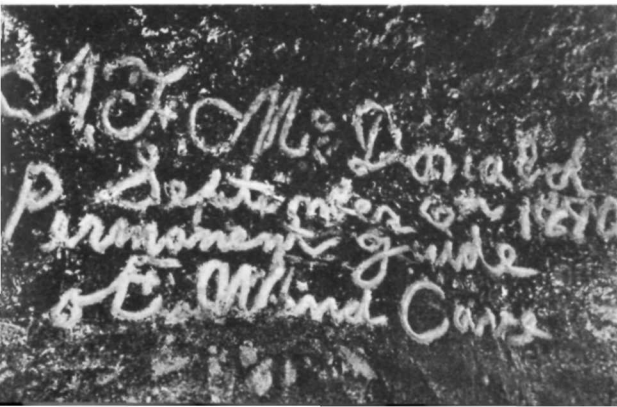 A. F. Mc Donald
September on 1890
Permanent guide
of Wind Cave